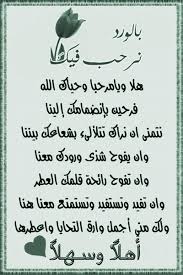 بالورد
نرحب فيك
هلا ويامرحبا وحياك الله
فرحين بإنضمامك إلينا
نتمنى ان نراك تتلألىء بشعاعك بيننا
وان يفوح شذى ورودك معنا
وان تفوح رائحة قلمك العطر
وان تفيد وتستفيد وتستمتع معنا هنا
ولك مني أجمل وارق التحايا واعطرها
أهلاً وسهلاً